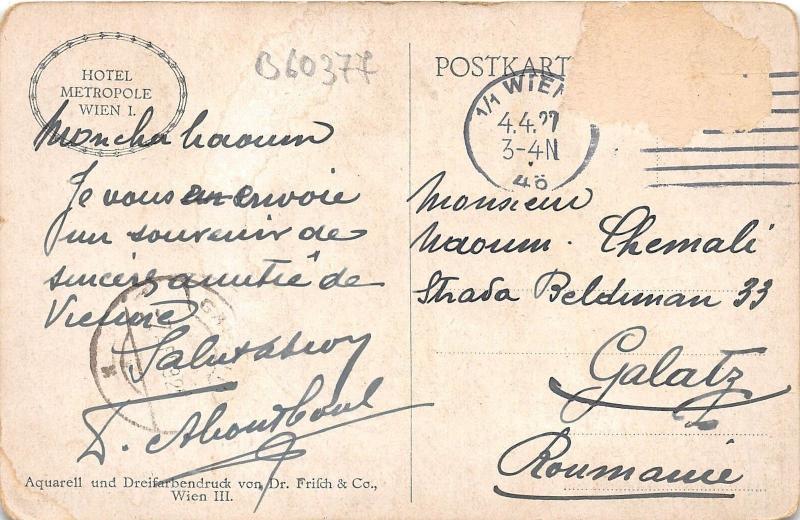 B60377
HOTEL
METROPOLE
WIEN I.
Mon cher Naoum
Je vous en envoie
un souvenir de
sincère amitié de
Vienne
Salutations
Aquarell und Dreifarbendruck von Dr. Frisch & Co.,
Wien III.
POSTKART
1/1 WIEN
4.4.
3-4N
40
Monsieur
Naoum. Chemali
Strada Belduman 33
Galatz
Roumanie